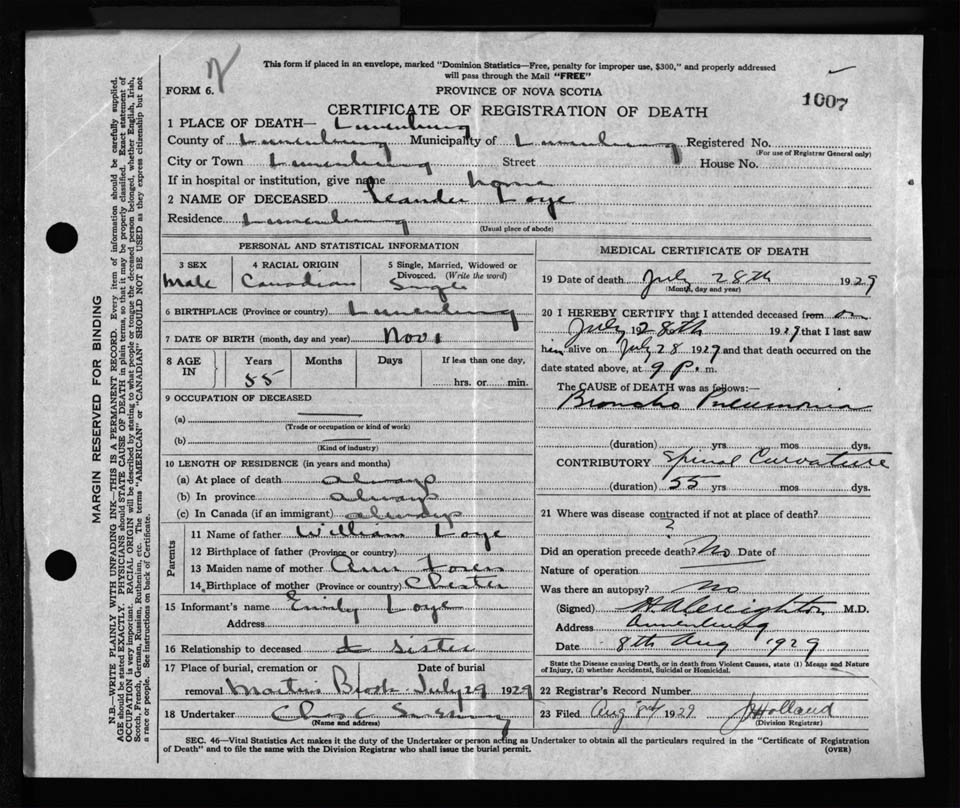 This form if placed in an envelope, marked "Dominion Statistics—Free, penalty for improper use, $300," and properly addressed
will pass through the Mail "FREE"
FORM 6.
PROVINCE OF NOVA SCOTIA
1007
CERTIFICATE OF REGISTRATION OF DEATH
1 PLACE OF DEATH— Lunenburg
County of Lunenburg Municipality of Lunenburg Registered No.
(For use of Registrar General only)
City or Town Lunenburg Street House No.
If in hospital or institution, give name home
2 NAME OF DECEASED Leander Loye
Residence Lunenburg
(Usual place of abode)
PERSONAL AND STATISTICAL INFORMATION
3 SEX 4 RACIAL ORIGIN 5 Single, Married, Widowed or
Divorced. (Write the word)
Male Canadian Single
6 BIRTHPLACE (Province or country) Lunenburg
7 DATE OF BIRTH (month, day and year) Nov 1
8 AGE IN Years Months Days If less than one day,
55 hrs. or min.
9 OCCUPATION OF DECEASED
(a)
(Trade or occupation or kind of work)
(b)
(Kind of industry)
10 LENGTH OF RESIDENCE (in years and months)
(a) At place of death always
(b) In province always
(c) In Canada (if an immigrant) always
Parents
11 Name of father William Loye
12 Birthplace of father (Province or country)
13 Maiden name of mother Ann
14 Birthplace of mother (Province or country) Chester
15 Informant's name Emily Loye
Address
16 Relationship to deceased sister
17 Place of burial, cremation or Date of burial
removal Martins Brook July 29 1929
18 Undertaker Chas
(Name and address)
MEDICAL CERTIFICATE OF DEATH
19 Date of death July 28th 1929
(Month, day and year)
20 I HEREBY CERTIFY that I attended deceased from on
July 28th 1929 that I last saw
him alive on July 28 1929 and that death occurred on the
date stated above, at 9 P. m.
The CAUSE of DEATH was as follows:—
Broncho Pneumonia
(duration) yrs mos dys.
CONTRIBUTORY Spinal Curvature
(duration) 55 yrs mos dys.
21 Where was disease contracted if not at place of death?
?
Did an operation precede death? No Date of
Nature of operation
Was there an autopsy? no
(Signed) H A Creighton M.D.
Address Lunenburg
Date 8th Aug 1929
State the Disease causing Death, or in death from Violent Causes, state (1) Means and Nature
of Injury, (2) whether Accidental, Suicidal or Homicidal.
22 Registrar's Record Number
23 Filed Aug 1929 Holland
(Division Registrar)
SEC. 46—Vital Statistics Act makes it the duty of the Undertaker or person acting as Undertaker to obtain all the particulars required in the "Certificate of Registration
of Death" and to file the same with the Division Registrar who shall issue the burial permit. (OVER)
MARGIN RESERVED FOR BINDING
N.B.—WRITE PLAINLY WITH UNFADING INK—THIS IS A PERMANENT RECORD. Every item of information should be carefully supplied.
AGE should be stated EXACTLY. PHYSICIANS should STATE CAUSE OF DEATH in plain terms, so that it may be properly classified. Exact statement of
OCCUPATION is very important. RACIAL ORIGIN will be described by stating to what people or tongue the deceased person belonged, whether English, Irish,
Scotch, French, German, Russian, Ruthenian, etc. The terms "AMERICAN" or "CANADIAN" SHOULD NOT BE USED as they express citizenship but not
a race or people. See instructions on back of Certificate.